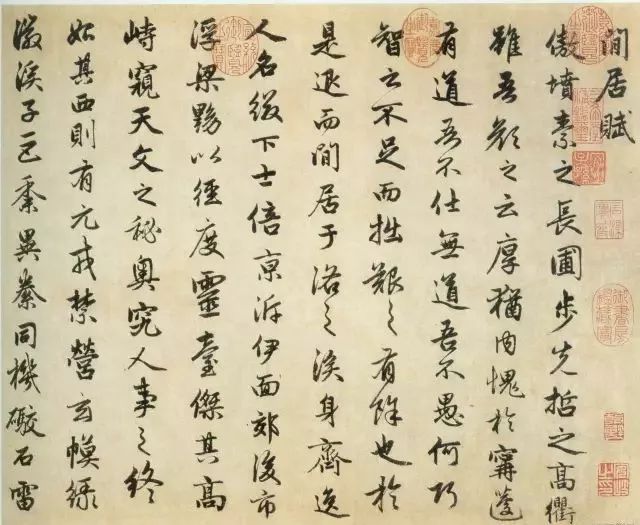 閒居賦
傲墳素之長圃步先哲之高衢
雖吾顏之云厚猶內愧於甯蘧
有道吾不仕無道吾不愚何巧
智之不足而拙艱之有餘也於
是退而閒居于洛之涘身齊逸
人名綴下士偝京泝伊面郊後市
浮梁黝以徑度靈臺傑其高
峙窺天文之秘奧究人事之終
始其西則有元戎禁營玄幙綠
徽溪子巨黍異絭同機礮石雷